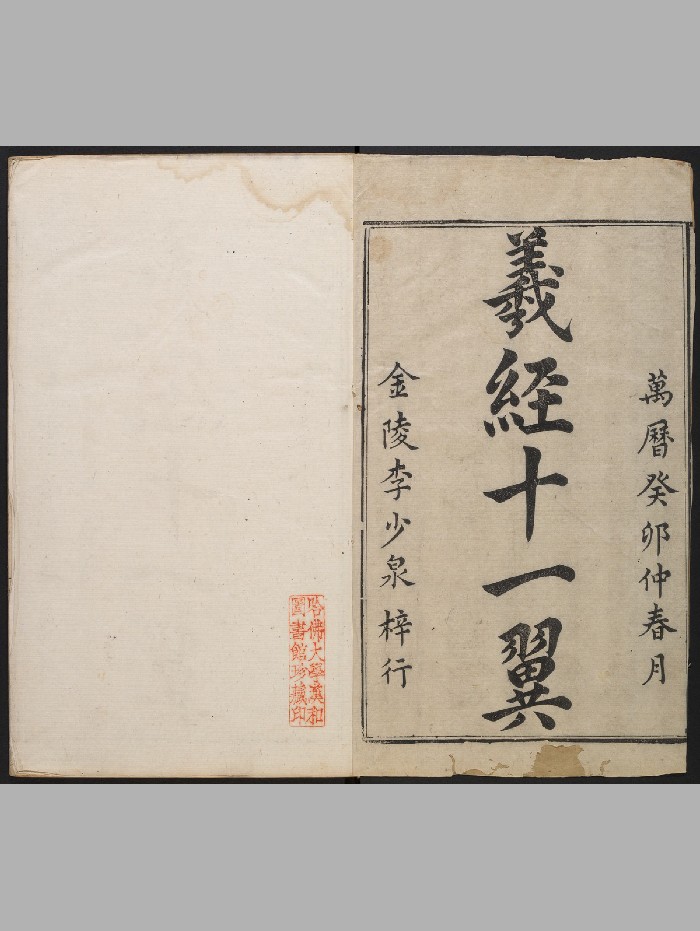 萬曆癸卯仲春月
羲經十一翼
金陵李少泉梓行
哈佛大學漢和
圖書館珍藏印